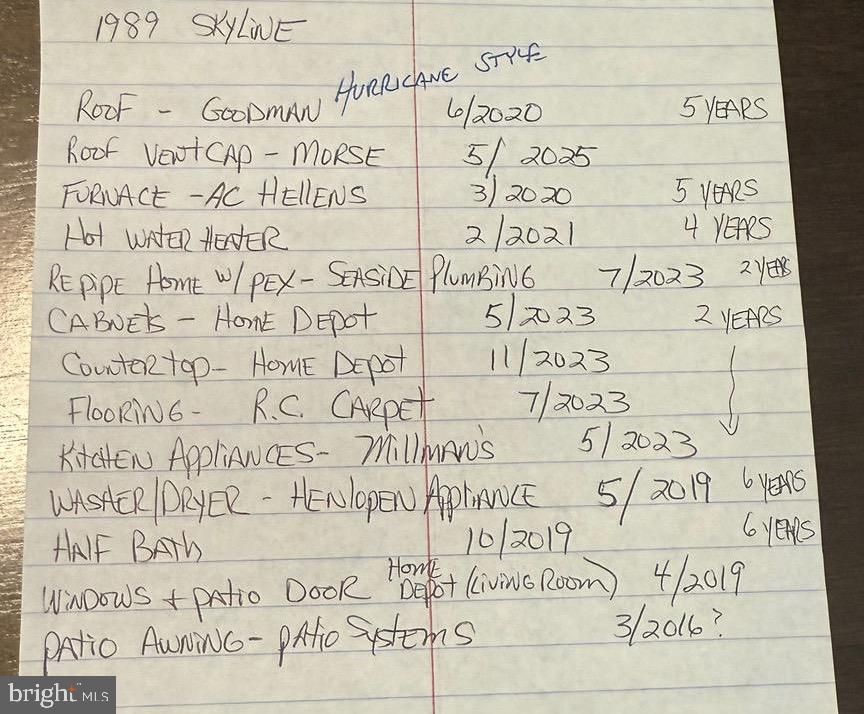 1989 SKYLINE
HURRICANE STYLE
ROOF - GOODMAN 6/2020 5 YEARS
ROOF VENT CAP - MORSE 5/ 2025
FURNACE - AC HELLENS 3/2020 5 YEARS
HOT WATER HEATER 2/2021 4 YEARS
REPIPE HOME W/ PEX - SEASIDE PLUMBING 7/2023 2 YEARS
CABNETS - HOME DEPOT 5/2023 2 YEARS
COUNTERTOP - HOME DEPOT 11/2023
FLOORING - R.C. CARPET 7/2023
KITCHEN APPLIANCES - MILLMAN'S 5/2023
WASHER/DRYER - HENLOPEN APPLIANCE 5/2019 6 YEARS
HALF BATH 10/2019 6 YEARS
WINDOWS + PATIO DOOR HOME DEPOT (LIVING ROOM) 4/2019
PATIO AWNING - PATIO SYSTEMS 3/2016?
bright MLS